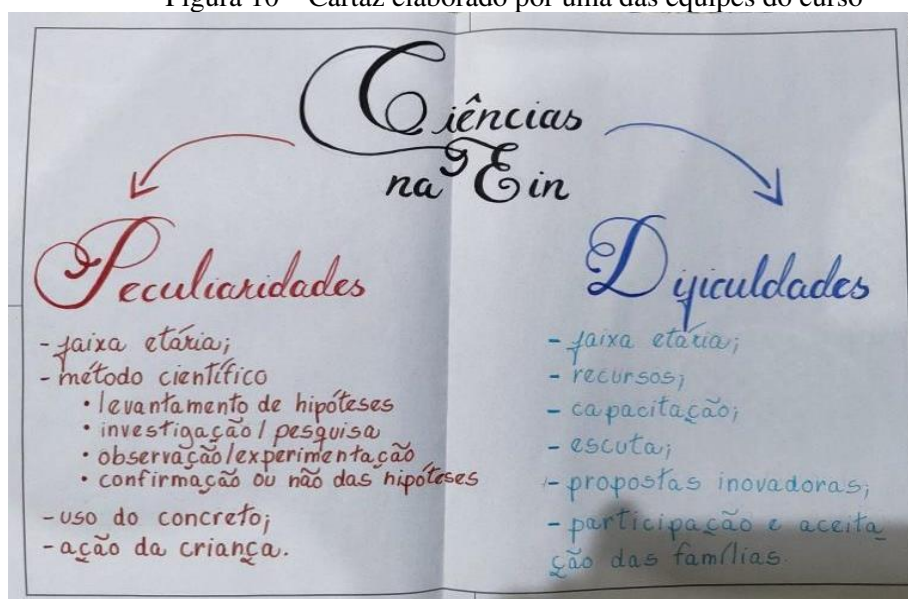 Figura 10 – Cartaz elaborado por uma das equipes do curso
Ciências
na Ein
Peculiaridades
- faixa etária;
- método científico
• levantamento de hipóteses
• investigação/ pesquisa
• observação/experimentação
• confirmação ou não das hipóteses
- uso do concreto;
- ação da criança.
Dificuldades
- faixa etária;
- recursos;
- capacitação;
- escuta;
- propostas inovadoras;
- participação e aceita
ção das famílias.